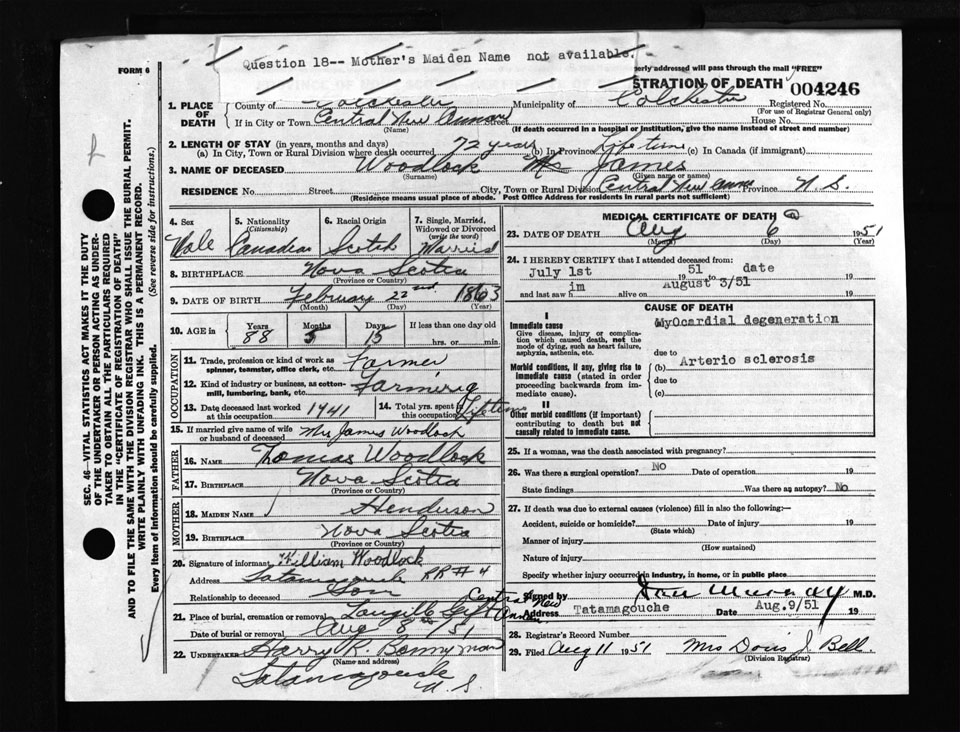 Question 18-- Mother's Maiden Name not available.
FORM 6
erly addressed will pass through the mail "FREE"
STRATION OF DEATH 004246
1. PLACE OF DEATH
County of Colchester Municipality of Colchester Registered No.
(For use of Registrar General only)
If in City or Town Central New Annan Street House No.
(Name) (If death occurred in a hospital or institution, give the name instead of street and number)
2. LENGTH OF STAY (in years, months and days)
(a) In City, Town or Rural Division where death occurred 72 years (b) In Province Life time (c) In Canada (if immigrant)
3. NAME OF DECEASED Woodlock Mr James
(Surname) (Given name or names)
RESIDENCE No. Street City, Town or Rural Division Central New Annan Province N S.
(Residence means usual place of abode. Post Office Address for residents in rural parts not sufficient)
4. Sex Male
5. Nationality (Citizenship) Canadian
6. Racial Origin Scotch
7. Single, Married, Widowed or Divorced (write the word) Married
8. BIRTHPLACE Nova Scotia
(Province or Country)
9. DATE OF BIRTH February 22nd 1863
(Month) (Day) (Year)
10. AGE in Years Months Days If less than one day old
88 5 15 hrs. or min.
OCCUPATION
11. Trade, profession or kind of work as spinner, teamster, office clerk, etc. Farmer
12. Kind of industry or business, as cotton-mill, lumbering, bank, etc. Farming
13. Date deceased last worked at this occupation 1941
14. Total yrs. spent in this occupation Lifetime
15. If married give name of wife or husband of deceased Mrs James Woodlock
FATHER
16. NAME Thomas Woodlock
17. BIRTHPLACE Nova Scotia
(Province or Country)
MOTHER
18. MAIDEN NAME Henderson
19. BIRTHPLACE Nova Scotia
(Province or Country)
20. Signature of informant William Woodlock
Address Tatamagouche RR # 4
Relationship to deceased Son
21. Place of burial, cremation or removal Central New Annan
Date of burial or removal Aug 8th /51
22. UNDERTAKER Harry R. Bonnyman
(Name and address)
Tatamagouche
N. S.
MEDICAL CERTIFICATE OF DEATH
23. DATE OF DEATH Aug 6 1951
(Month) (Day) (Year)
24. I HEREBY CERTIFY that I attended deceased from:
July 1st 19 51 to date 19
and last saw h im alive on August 3/51 19
CAUSE OF DEATH
I
Immediate cause
Give disease, injury or complication which caused death, not the mode of dying, such as heart failure, asphyxia, asthenia, etc.
(a) Myocardial degeneration
due to
Morbid conditions, if any, giving rise to immediate cause (stated in order proceeding backwards from immediate cause).
(b) Arterio sclerosis
due to
(c)
II
Other morbid conditions (if important) contributing to death but not causally related to immediate cause.
25. If a woman, was the death associated with pregnancy?
26. Was there a surgical operation? No Date of operation 19
State findings Was there an autopsy? No
27. If death was due to external causes (violence) fill in also the following:—
Accident, suicide or homicide? Date of injury 19
(State which)
Manner of injury
(How sustained)
Nature of injury
Specify whether injury occurred in industry, in home, or in public place
Signed by Dan Murray M.D.
Address Tatamagouche Date Aug.9/51 19
28. Registrar's Record Number
29. Filed Aug 11 1951 Mrs Doris J. Bell
(Division Registrar)
SEC. 46—VITAL STATISTICS ACT MAKES IT THE DUTY
OF THE UNDERTAKER OR PERSON ACTING AS UNDER-
TAKER TO OBTAIN ALL THE PARTICULARS REQUIRED
IN THE "CERTIFICATE OF REGISTRATION OF DEATH"
AND TO FILE THE SAME WITH THE DIVISION REGISTRAR WHO SHALL ISSUE THE BURIAL PERMIT.
WRITE PLAINLY WITH UNFADING INK. THIS IS A PERMANENT RECORD.
Every item of information should be carefully supplied. (See reverse side for instructions.)